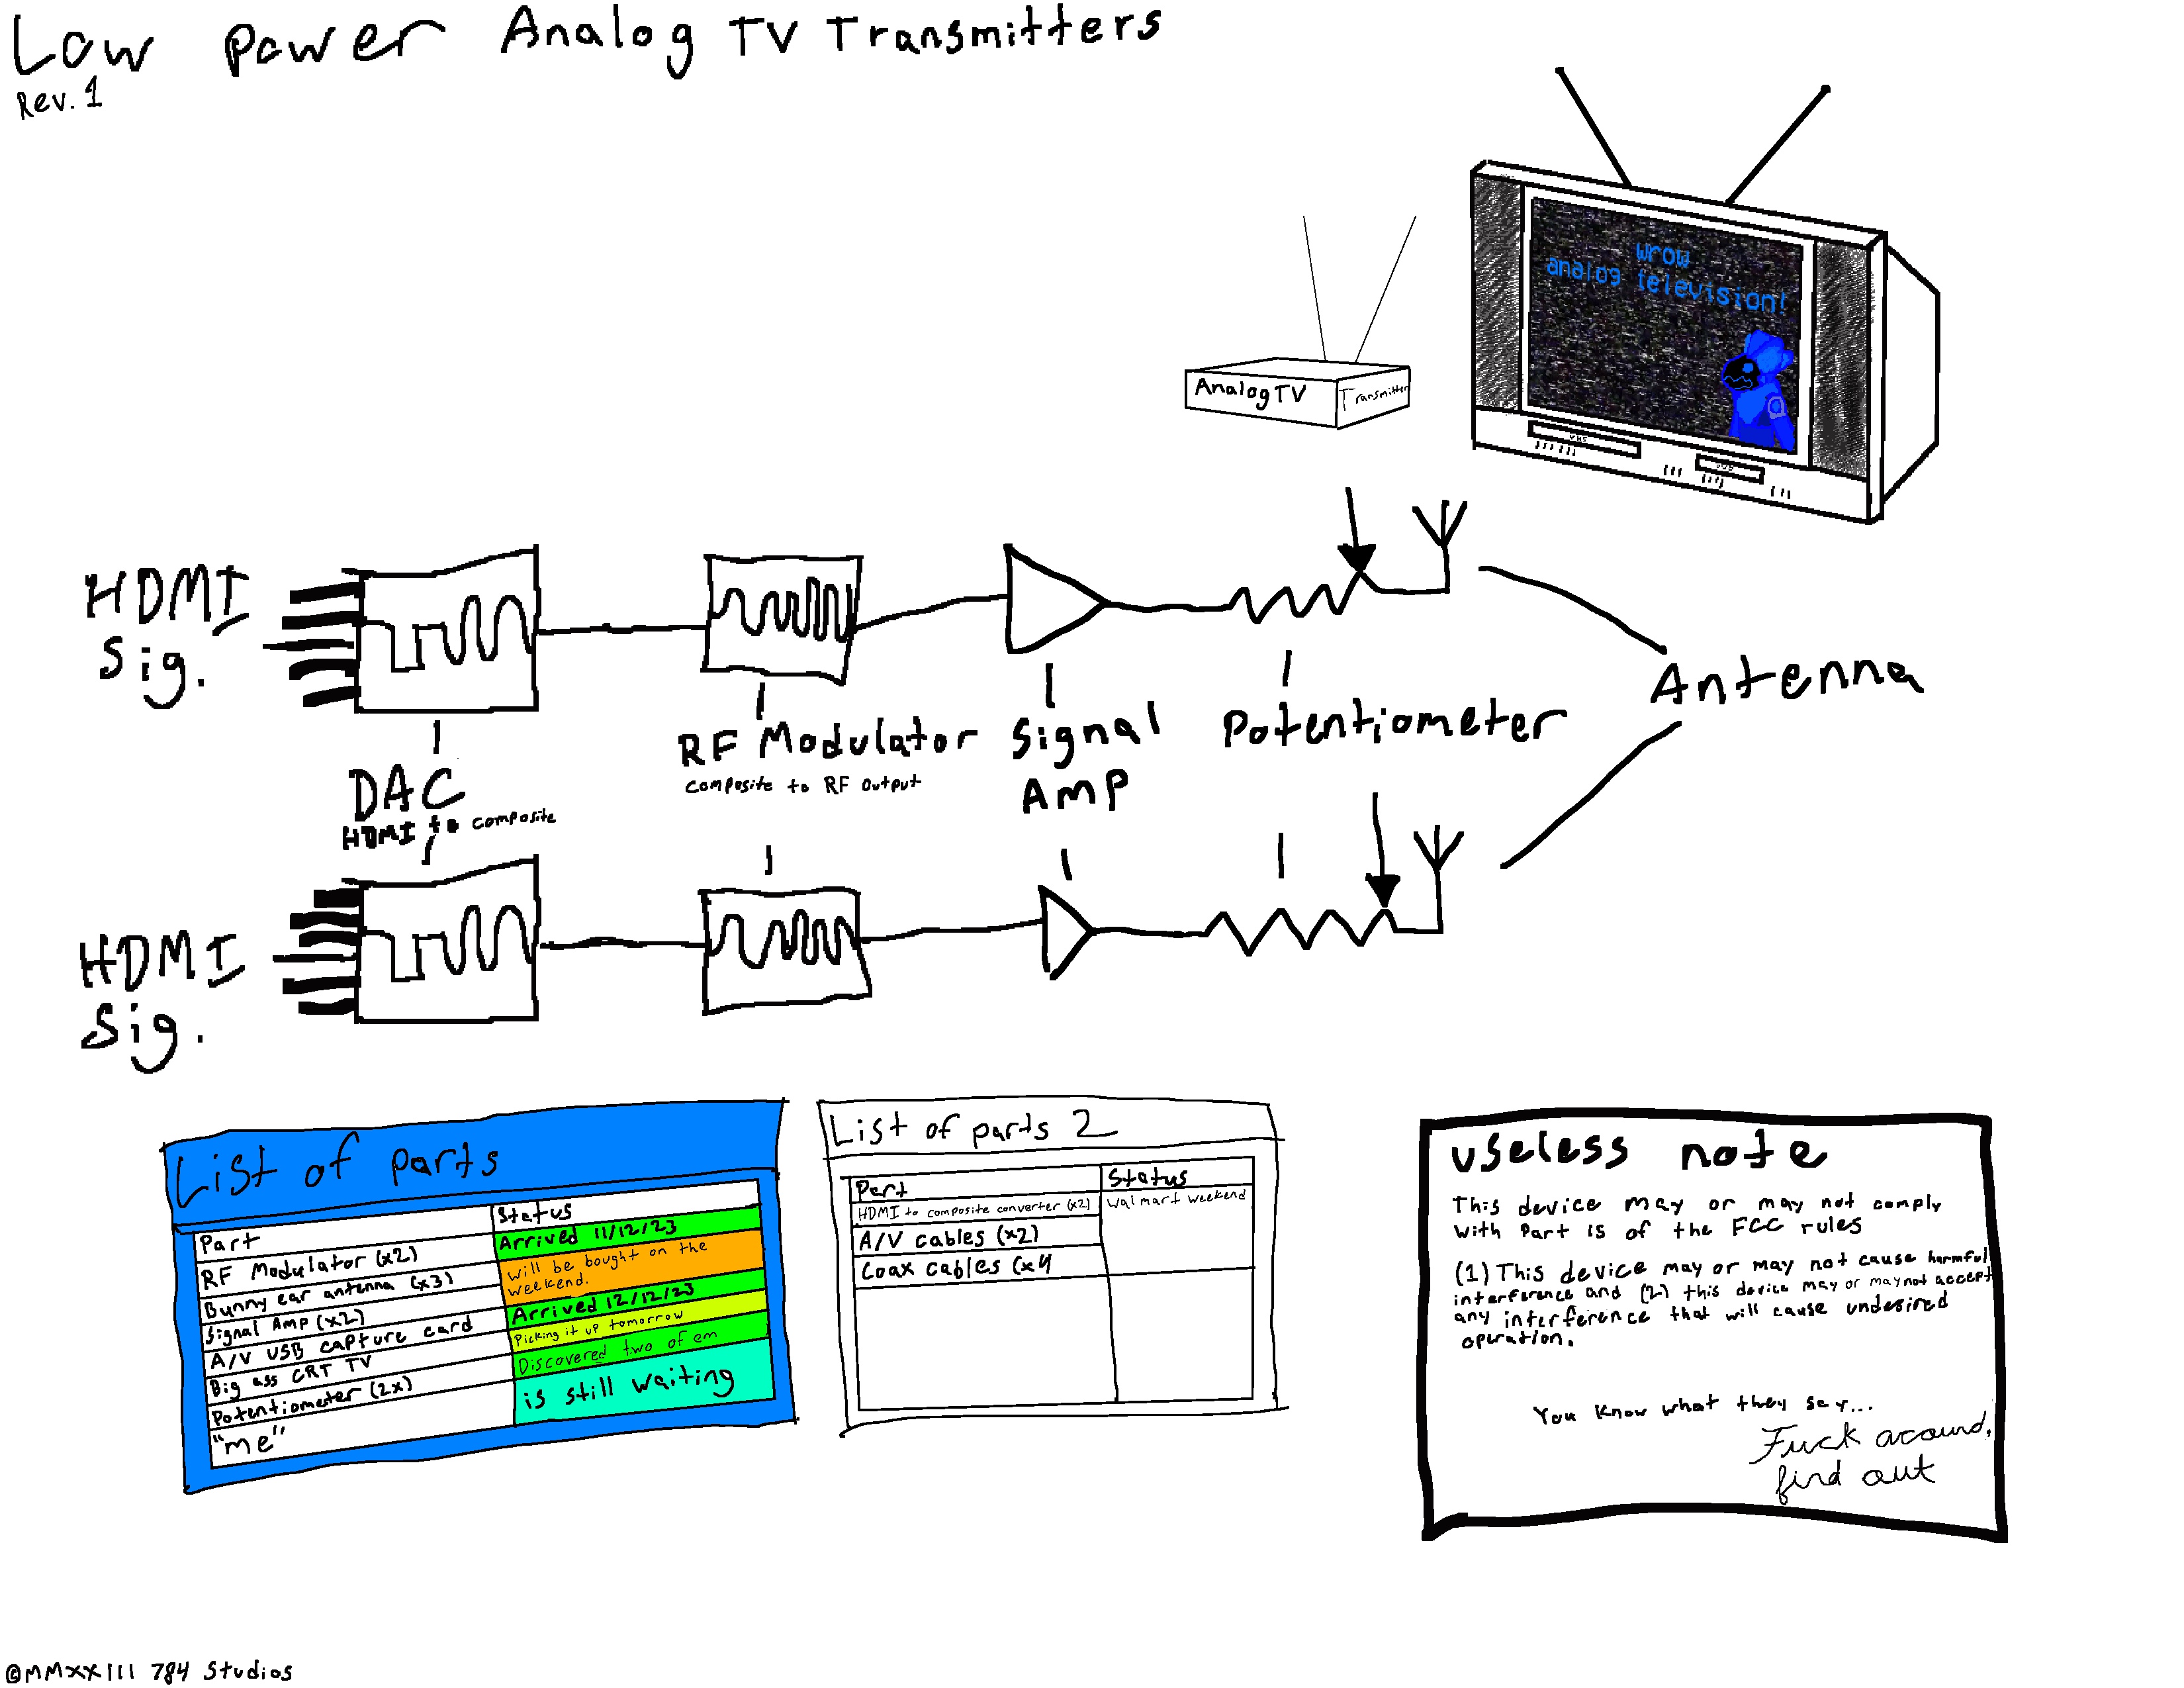 Low power Analog TV Transmitters
Rev. 1
wrow
analog television!
Analog TV Transmitter
VHS
HDMI
Sig.
DAC
HDMI to composite
RF Modulator
composite to RF output
Signal
Amp
Potentiometer
Antenna
HDMI
Sig.
List of parts
Part Status
RF Modulator (x2) Arrived 11/12/23
Bunny ear antenna (x3) will be bought on the
weekend.
Signal Amp (x2) Arrived 12/12/23
A/V USB capture card Picking it up tomorrow
Big ass CRT TV Discovered two of em
Potentiometer (2x)
"me" is still waiting
List of parts 2
Part Status
HDMI to composite converter (x2) Walmart weekend
A/V cables (x2)
Coax cables (x4
useless note
This device may or may not comply
with Part is of the FCC rules
(1) This device may or may not cause harmful
interference and (2) this device may or may not accept
any interference that will cause undesired
operation.
You know what they say...
Fuck around,
find out
©MMXXIII 784 Studios